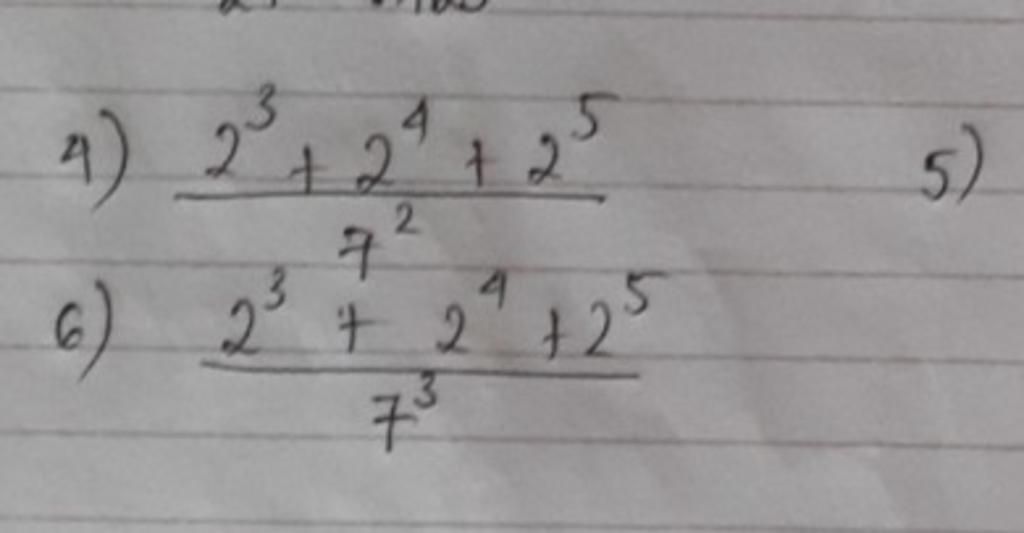 4) 2³ + 2⁴ + 2⁵ 5)
7²
6) 2³ + 2⁴ + 2⁵
7³